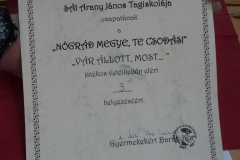 SÁI Arany János Tagiskolája
csapatának
a
„NÓGRÁD MEGYE, TE CSODÁS!"
„VÁR ÁLLOTT, MOST..."
játékos vetélkedőn elért
3.
helyezéséért.
Gyermekekért